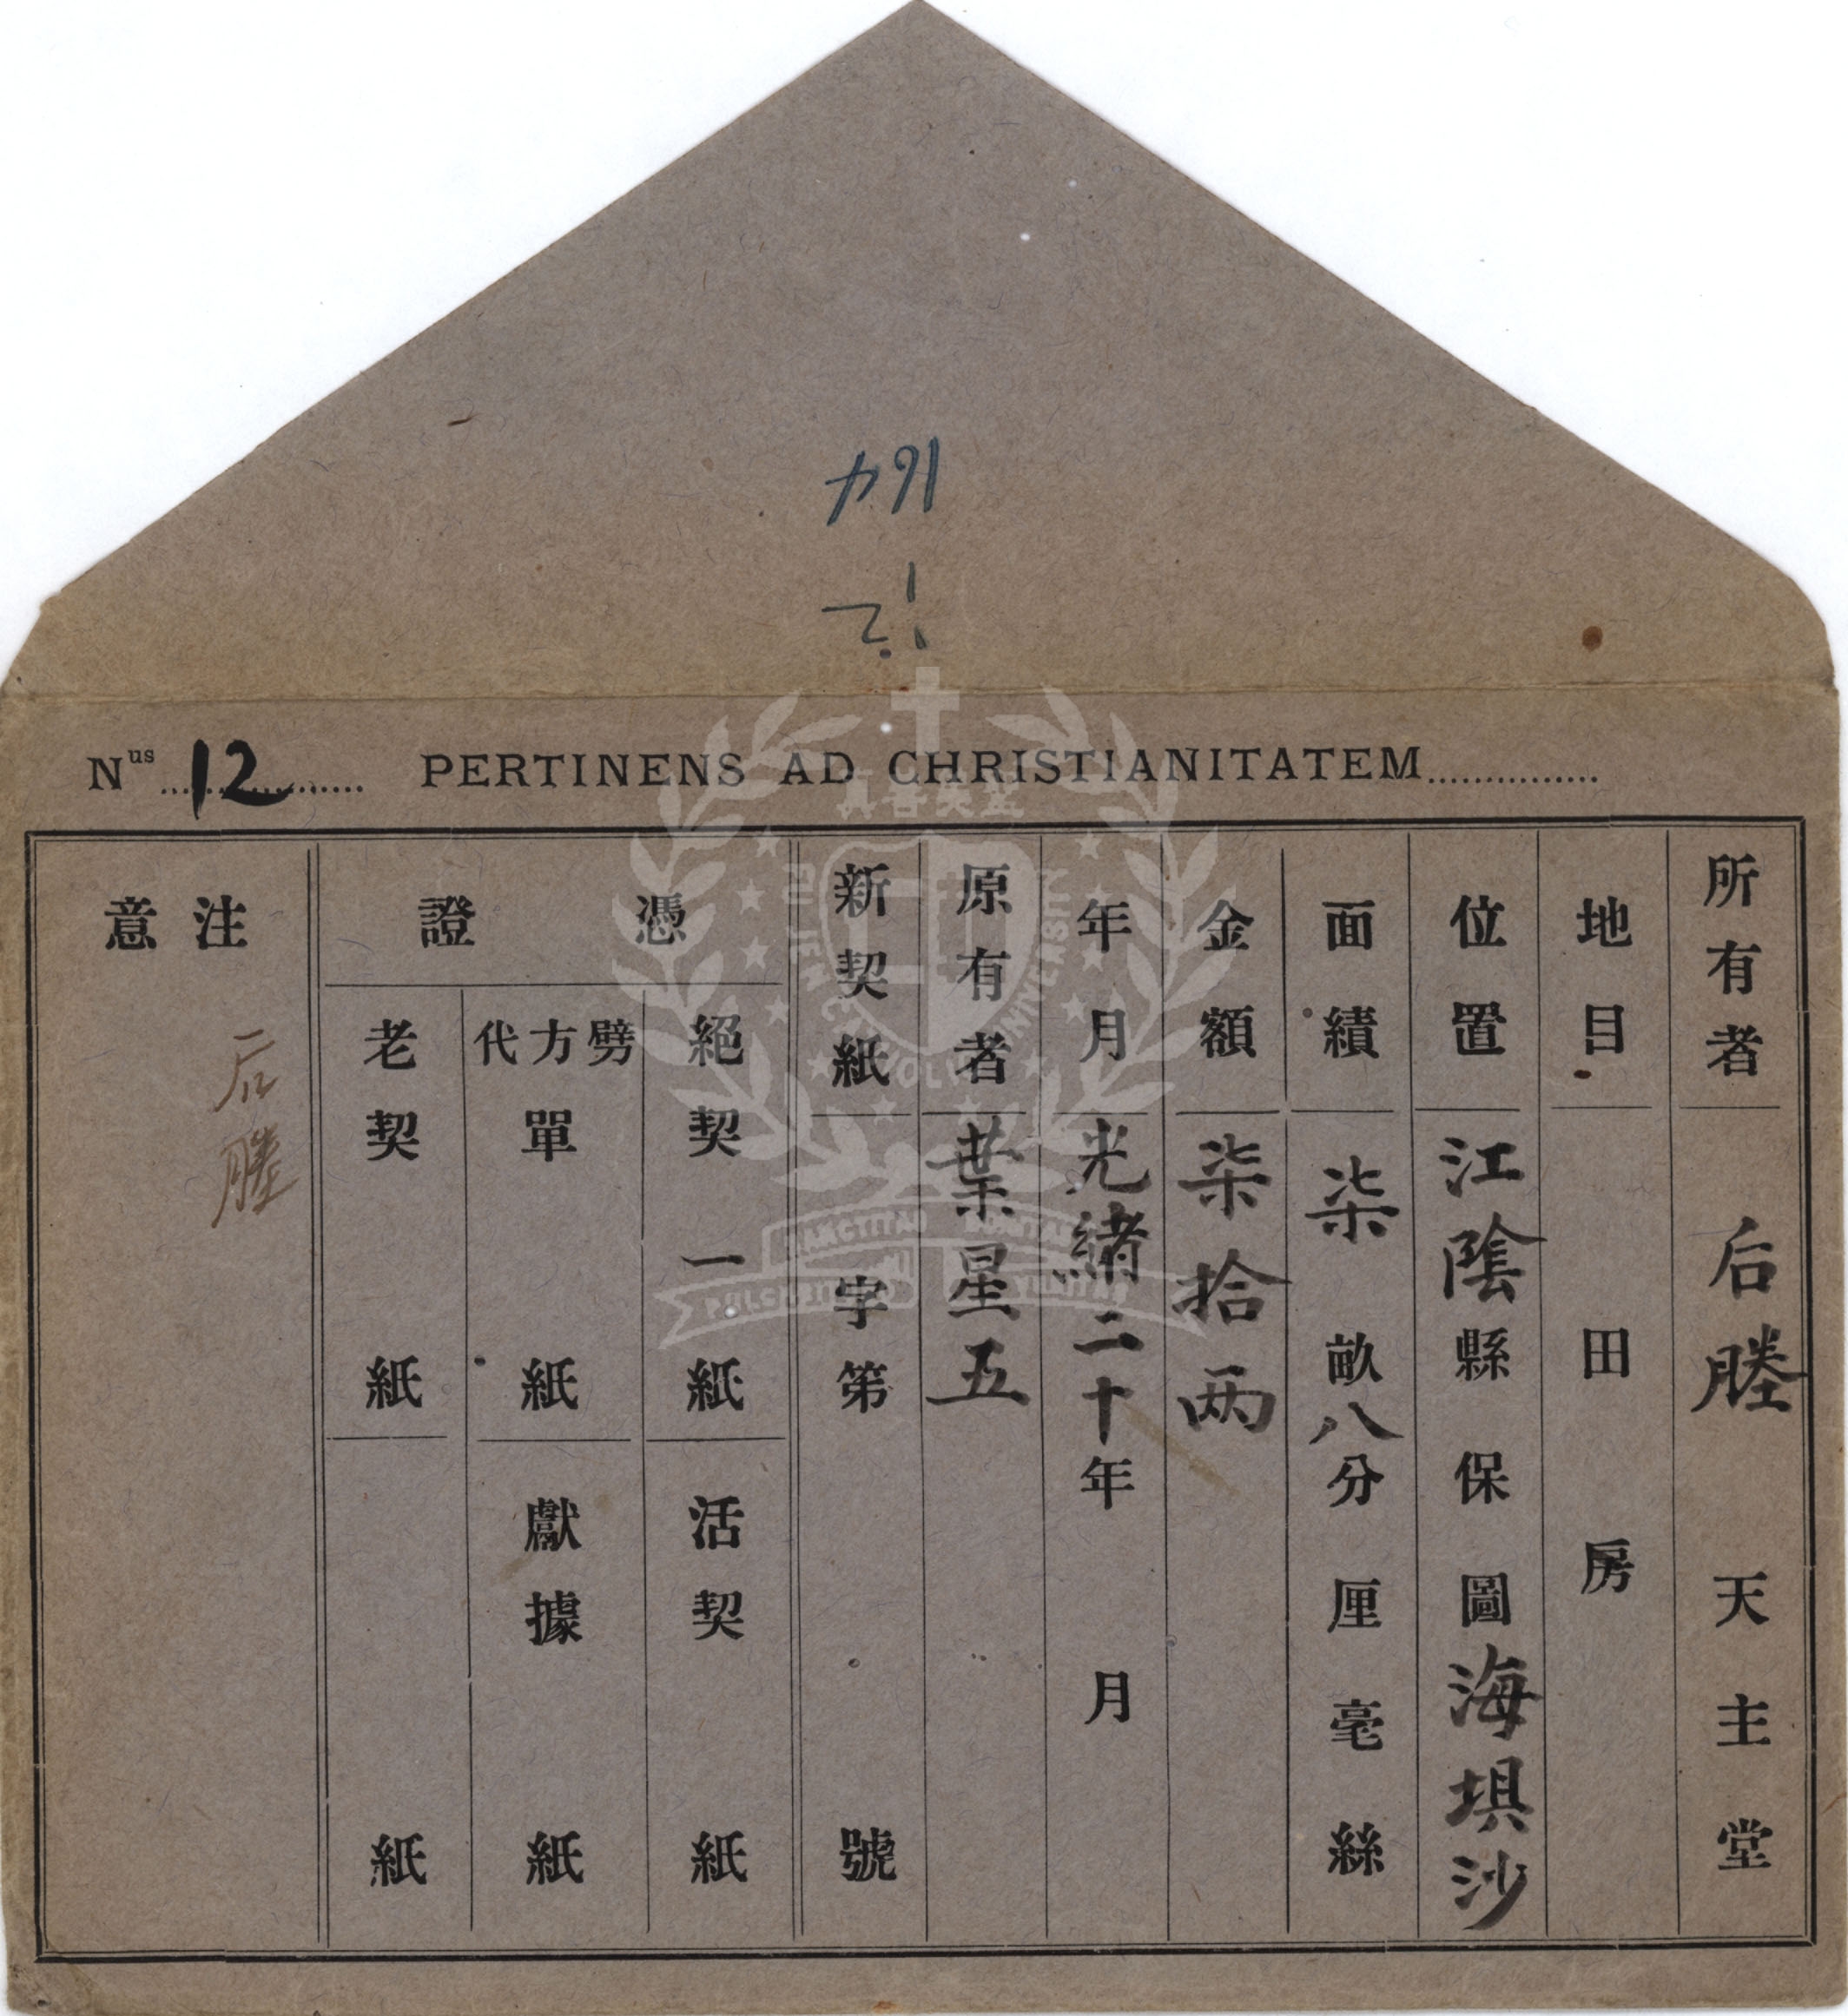 164
12
Nus 12 PERTINENS AD CHRISTIANITATEM
所有者 后塍 天主堂
地目 田 房
位置 江陰縣 保 圖海埧沙
面績 柒畝八分 厘 毫 絲
金額 柒拾両
年月 光緒二十年 月
原有者 葉星五
新契紙 字第 號
憑證
絕契 一紙 活契 紙
劈方代單 紙 獻據 紙
老契 紙 紙
注意
后塍